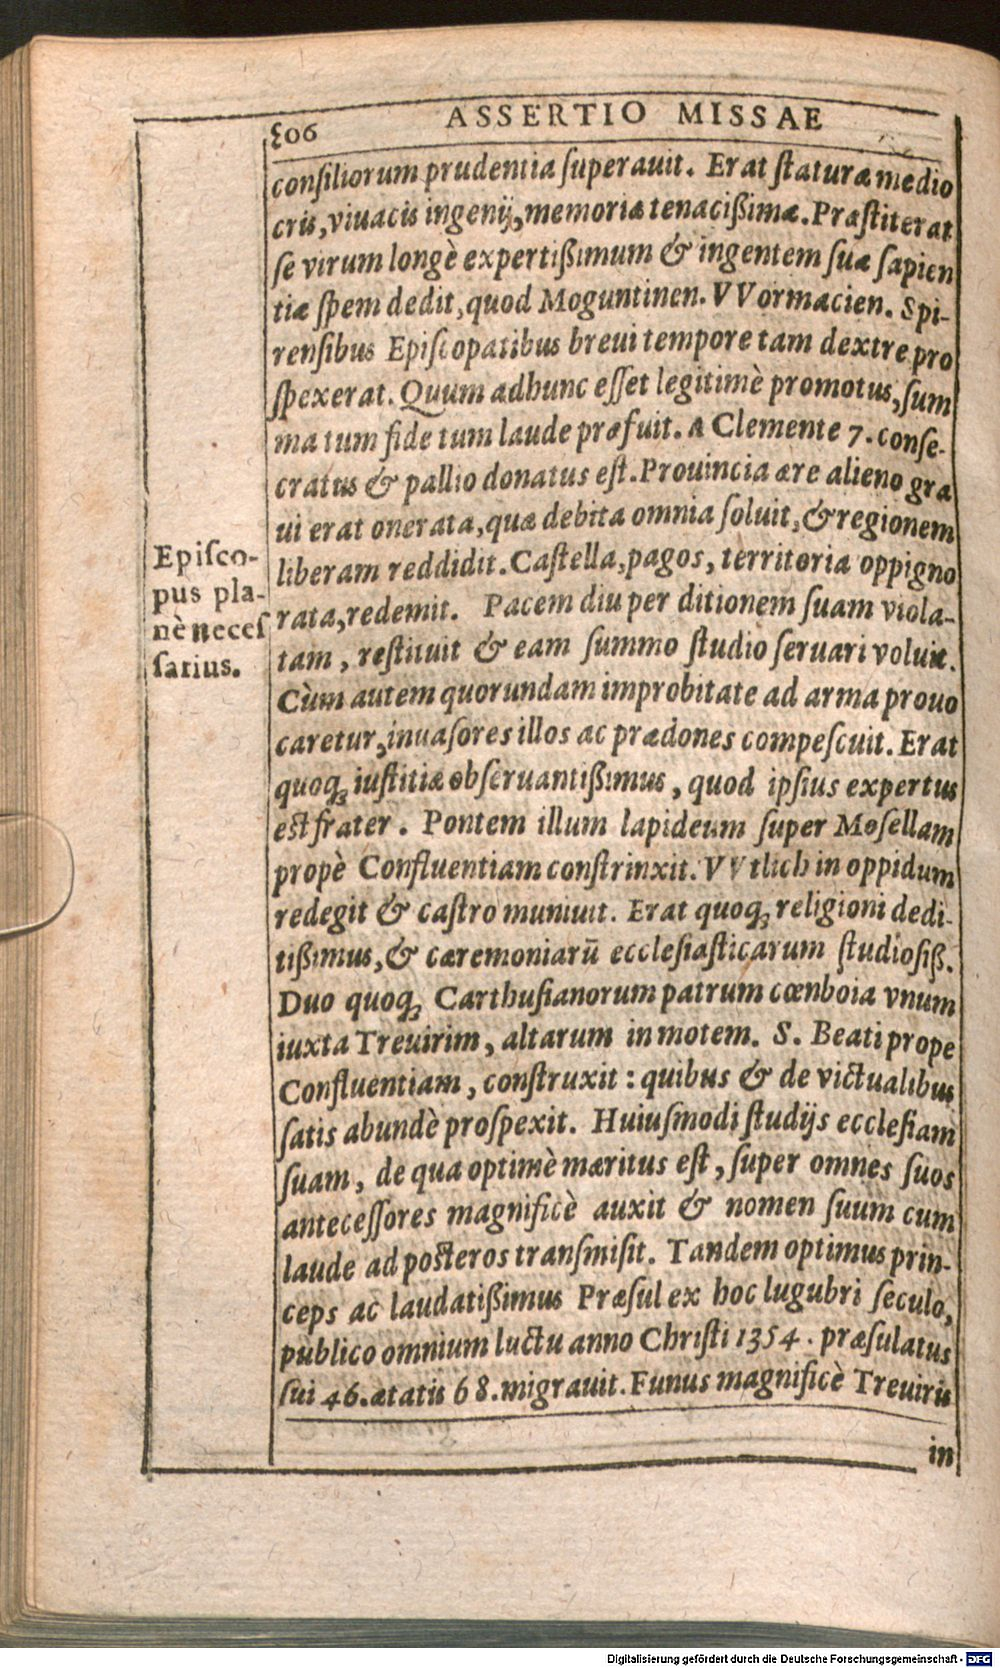 506 ASSERTIO MISSAE
conſiliorum prudentia ſuperauit. Erat ſtaturæ medio
cris, viuacis ingenij, memoriæ tenacißimæ. Præſtiterat
ſe virum longè expertißimum & ingentem ſuæ ſapien
tiæ ſpem dedit, quod Moguntinen. VVormacien. Spi-
renſibus Epiſcopatibus breui tempore tam dextre pro
ſpexerat. Quum adhunc eſſet legitimè promotus, ſum
ma tum fide tum laude præfuit. A Clemente 7. conſe-
cratus & pallio donatus eſt. Prouincia ære alieno gra
ui erat onerata, quæ debita omnia ſoluit, & regionem
liberam reddidit. Caſtella, pagos, territoria oppigno
rata, redemit. Pacem diu per ditionem ſuam viola-
tam, reſtituit & eam ſummo ſtudio ſeruari voluit.
Cùm autem quorundam improbitate ad arma prouo
caretur, inuaſores illos ac prædones compeſcuit. Erat
quoq; iuſtitiæ obſeruantißimus, quod ipſius expertus
eſt frater. Pontem illum lapideum ſuper Moſellam
propè Confluentiam conſtrinxit. VVtlich in oppidum
redegit & caſtro muniuit. Erat quoq; religioni dedi-
tißimus, & cæremoniarū eccleſiaſticarum ſtudioſiß.
Duo quoq; Carthuſianorum patrum cœnboia vnum
iuxta Treuirim, altarum in motem. S. Beati prope
Confluentiam, conſtruxit: quibus & de victualibus
ſatis abundè proſpexit. Huiuſmodi ſtudijs eccleſiam
ſuam, de qua optimè mæritus eſt, ſuper omnes ſuos
anteceſſores magnificè auxit & nomen ſuum cum
laude ad poſteros tranſmiſit. Tandem optimus prin-
ceps ac laudatißimus Præſul ex hoc lugubri ſeculo,
publico omnium luctu anno Chriſti 1354. præſulatus
ſui 46. ætatis 68. migrauit. Funus magnificè Treuiris
in
Epiſco-
pus pla-
nè neceſ
ſarius.
Digitalisierung gefördert durch die Deutsche Forschungsgemeinschaft - DFG